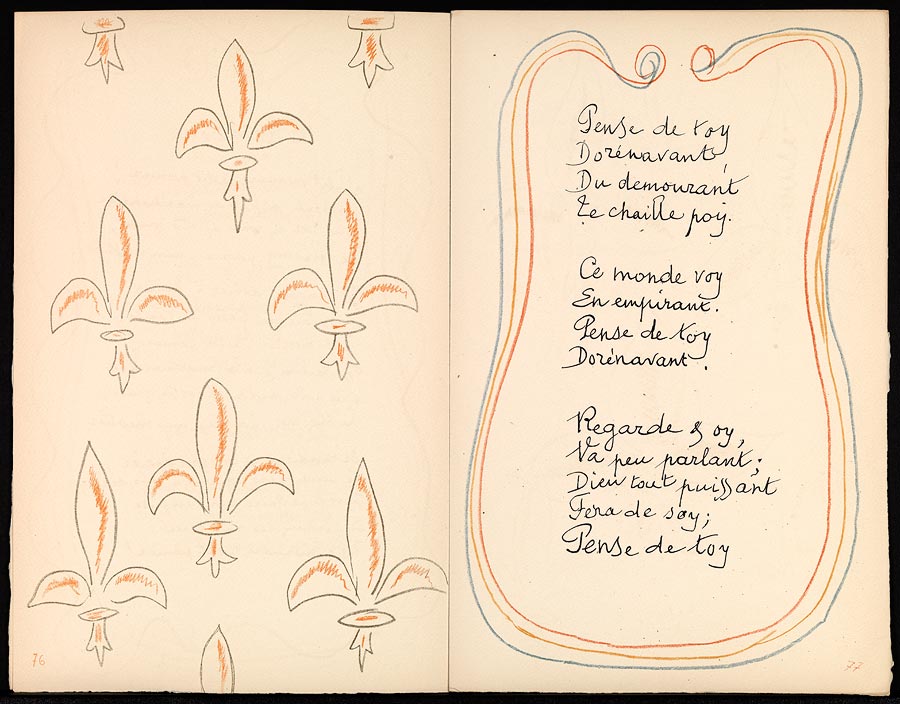 Pense de toy
Dorénavant,
Du demourant
Te chaille poy.
Ce monde voy
En empirant.
Pense de toy
Dorénavant.
Regarde & oy,
Va peu parlant;
Dieu tout puissant
Fera de soy;
Pense de toy
76
77